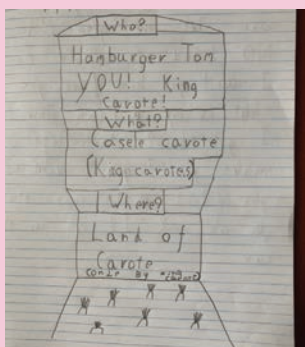 Who?
Hamburger Tom
YOU! King
Carote!
What?
Casele carote
(King carotes)
Where?
Land of
Carote
By